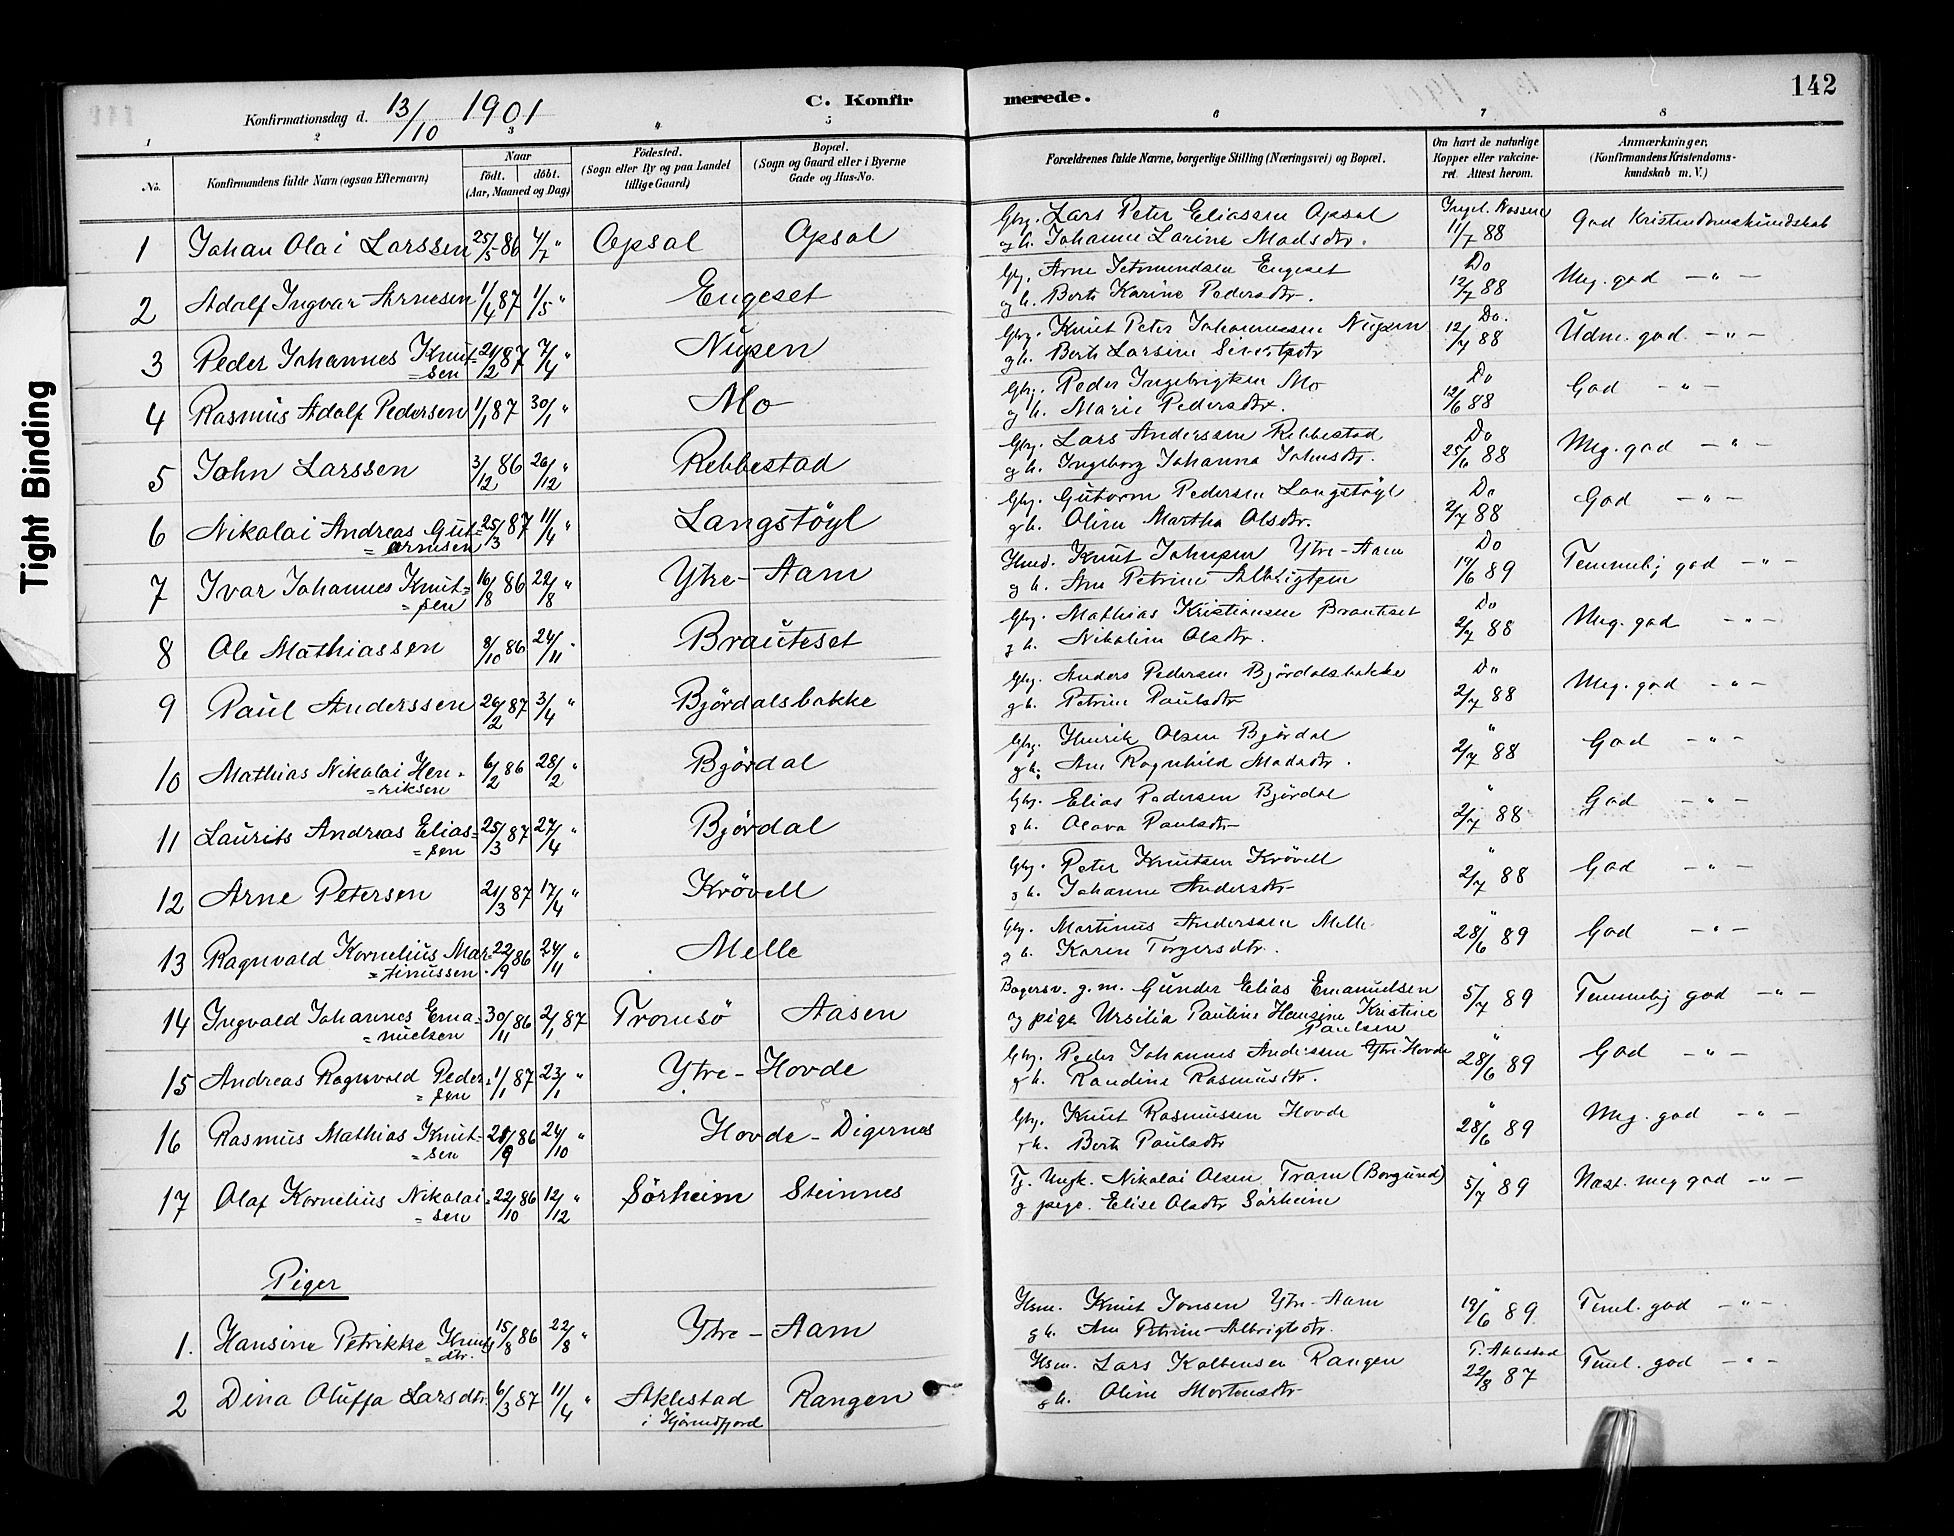 142
Konfirmationsdag d. 13/10 1901
C. Konfirmerede.
1 2 3 4 5 6 7 8
No.
Konfirmandens fulde Navn (ogsaa Efternavn)
Naar
födt. döbt.
(Aar, Maaned og Dag)
Födested.
(Sogn eller By og paa Landet
tillige Gaard)
Bopæl.
(Sogn og Gaard eller i Byerne
Gade og Hus-No.
Forældrenes fulde Navne, borgerlige Stilling (Næringsvei) og Bopæl.
Om havt de naturlige
Kopper eller vakcine-
ret. Attest herom.
Anmærkninger,
(Konfirmandens Kristendoms-
kundskab m. V.)
1 Johan Olai Larssen 25/5 86 4/7 " Opsal Opsal Gbrg. Lars Peter Eliassen Opsal
og h. Johanne Larine Madsdtr. 11/7 88 God Kristendomskundskab
2 Adolf Ingvar Arnesen 1/4 87 1/5 " Engeset Gbrg. Arne Engeset Do
og h. Berte Karine Pedersdtr. 12/7 88 Meg. god — " —
3 Peder Johannes Knut= 7/4 " Nupen Gbrg. Knut Peter Johannessen Nupen Do.
=sen g h. Berte Larsine 12/7 88 Udm. god — " —
4 Rasmus Adolf Pedersen 1/1 87 30/1 " Mo Gbrg. Peder Ingebrigtsen Mo Do
og h. Marie Pedersdtr. 12/6 88 God — " —
5 John Larssen 3/12 86 26/12 " Rebbestad Gbrg. Lars Anderssen Rebbestad Do
og h. Ingeborg Johanna Johnsdtr. 25/6 88 Meg. god — " —
6 Nikolai Andreas Gut= 25/3 87 11/4 " Langstöyl Gbrg. Gutorm Pedersen Langstöyl Do
=ormsen g h. Oline Martha Olsdtr. 2/7 88 God — " —
7 Ivar Johannes Knut= 16/8 86 22/8 " Ytre-Aam Knut Johnsen Ytre-Aam Do
=sen og h. Ane Petrine 19/6 89 Temmelig god — " —
8 Ole Mathiassen 8/10 86 24/11 " Brauteset Gbrg. Mathias Kristiansen Brauteset Do
g h. Nikoline Olsdtr. 2/7 88 Meg. god — " —
9 Paul Anderssen 26/2 87 3/4 " Björdalsbakke Gbrg. Anders Pedersen Björdalsbakke Do
g h. Petrine Paulsdtr 2/7 88 Meg. god — " —
10 Mathias Nikolai Hen- 6/2 86 28/2 " Björdal Gbrg. Henrik Olsen Björdal "
=riksen g h. Ane Ragnhild Madsdtr. 2/7 88 God — " —
11 Laurits Andreas Elias= 25/3 87 27/4 " Björdal Gbrg. Elias Pedersen Björdal "
=sen g h. Olava Paulsdtr 2/7 88 God — " —
12 Arne Petersen 21/3 87 17/4 " Krövell Gbrg. Peter Knutsen Krövell "
g h. Johanne Andersdtr 2/7 88 God — " —
13 Ragnvald Kornelius Mar- 22/9 86 24/11 " Melle Gbrg. Martinus Anderssen Melle "
=tinussen g h. Karen Torgersdtr. 28/6 89 God — " —
14 Ingvald Johannes Ema= 30/11 86 2/1 87 Tromsö Aasen Bagersv. g. m. Gunder Elias Emanuelsen
=nuelsen og pige Ursilia Pauline Hansine Kristine
Paulsen 5/7 89 Temmelig god — " —
15 Andreas Ragnvald Peder= 1/1 87 23/1 " Ytre-Hovde Gbrg. Peder Johannes Anderssen Ytre Hovde "
=sen g h. Randine Rasmusdtr. 28/6 89 God — " —
16 Rasmus Mathias Knut- 86 24/10 " Hovde-Digernes Gbrg. Knut Rasmussen Hovde "
=sen g h. Berte Paulsdtr 28/6 89 Meg. god — " —
17 Olaf Kornelius Nikolai= 22/10 86 12/12 " Sörheim Steinnes Tj. Ungk. Nikolai Olsen Tram (Borgund) "
=sen g pige Elise Olsdtr Sörheim 5/7 89 Næst. meg god — " —
Piger
1. Hansine Petrikke Knuts 15/8 86 22/8 " Ytre-Aam Hsm. Knut Jonsen Ytre-Aam "
=dtr. g h. Ane Petrine Albrigtsdtr. 19/6 89 Teml. god — " —
2 Dina Oluffa Larsdtr. 6/3 87 11/4 " Aklestad Rangen Hsm. Lars Rangen
i Hjörundfjord g h. Oline Mortensdtr 22/8 87 Teml. god — " —
Tight Binding